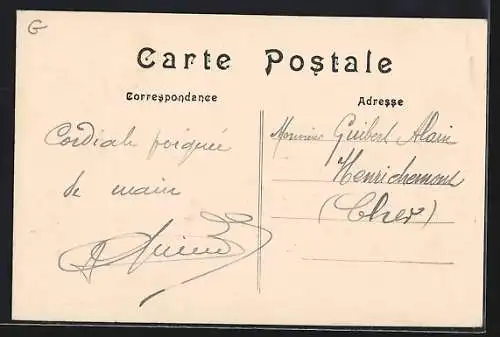 G
Carte Postale
Correspondance
Adresse
Cordiale poignée
de main
Monsieur Guibert Alain
Henrichemont
(Cher)